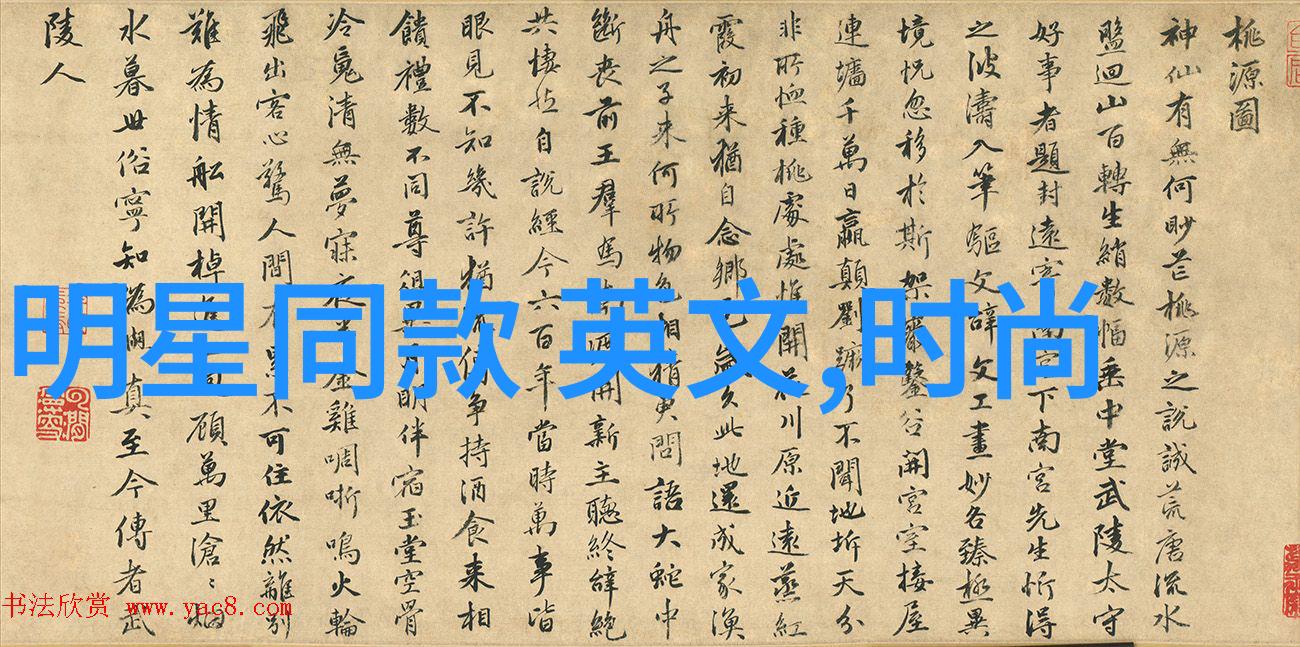 桃源圖
神仙有無何眇芒桃源之說誠荒唐流水
盤迴山百轉生綃數幅垂中堂武陵太守
好事者題封遠寄南宮下南宮先生忻得
之波濤入筆驅文辭文工畫妙各臻極異
境恍忽移於斯架巖鑿谷開宮室接屋
連墻千萬日嬴顛劉蹶了不聞地坼天分
非所恤種桃處處惟開花川原近遠蒸紅
霞初來猶自念鄉邑歲久此地還成家漁
舟之子來何所物色相猜更問語大蛇中
斷喪前王羣馬開新主聽終辭絕
共悽然自說經今六百年當時萬事皆
眼見不知幾許猶傳爭持酒食來相
饋禮數不同尊俎異月明伴宿玉堂空骨
冷魂清無夢寐夜半金雞啁哳鳴火輪
飛出客心驚人間有累不可住依然離別
難為情船開棹進回顧萬里滄〻烟
水暮世俗寧知為真至今傳者武
陵人
明星同款 英文,时尚
书法欣赏 www.yac8.com